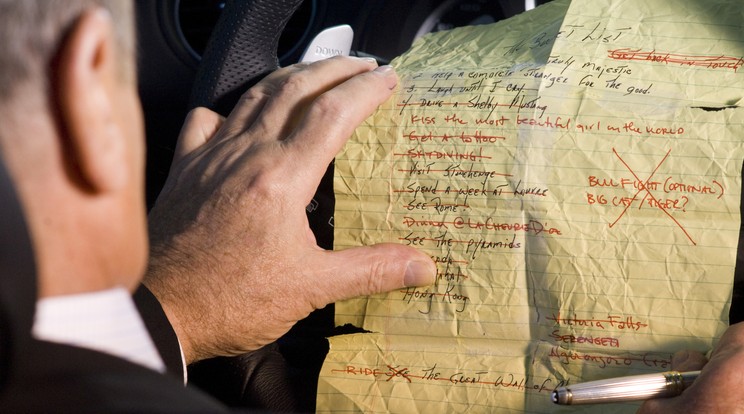 DOWN
The Bucket List
Get back in touch
truly majestic
2. Help a complete stranger for the good
3. Laugh until I cry
4. Drive a Shelby Mustang
Kiss the most beautiful girl in the world
Get a tattoo
SKYDIVING!
Visit Stonehenge
Spend a week at Louvre
See Rome!
Dinner @ La Chevre D'or
See the pyramids
Hong Kong
BULL FIGHT (OPTIONAL)
BIG CAT - TIGER?
Victoria Falls
SERENGETI
RIDE The Great Wall of